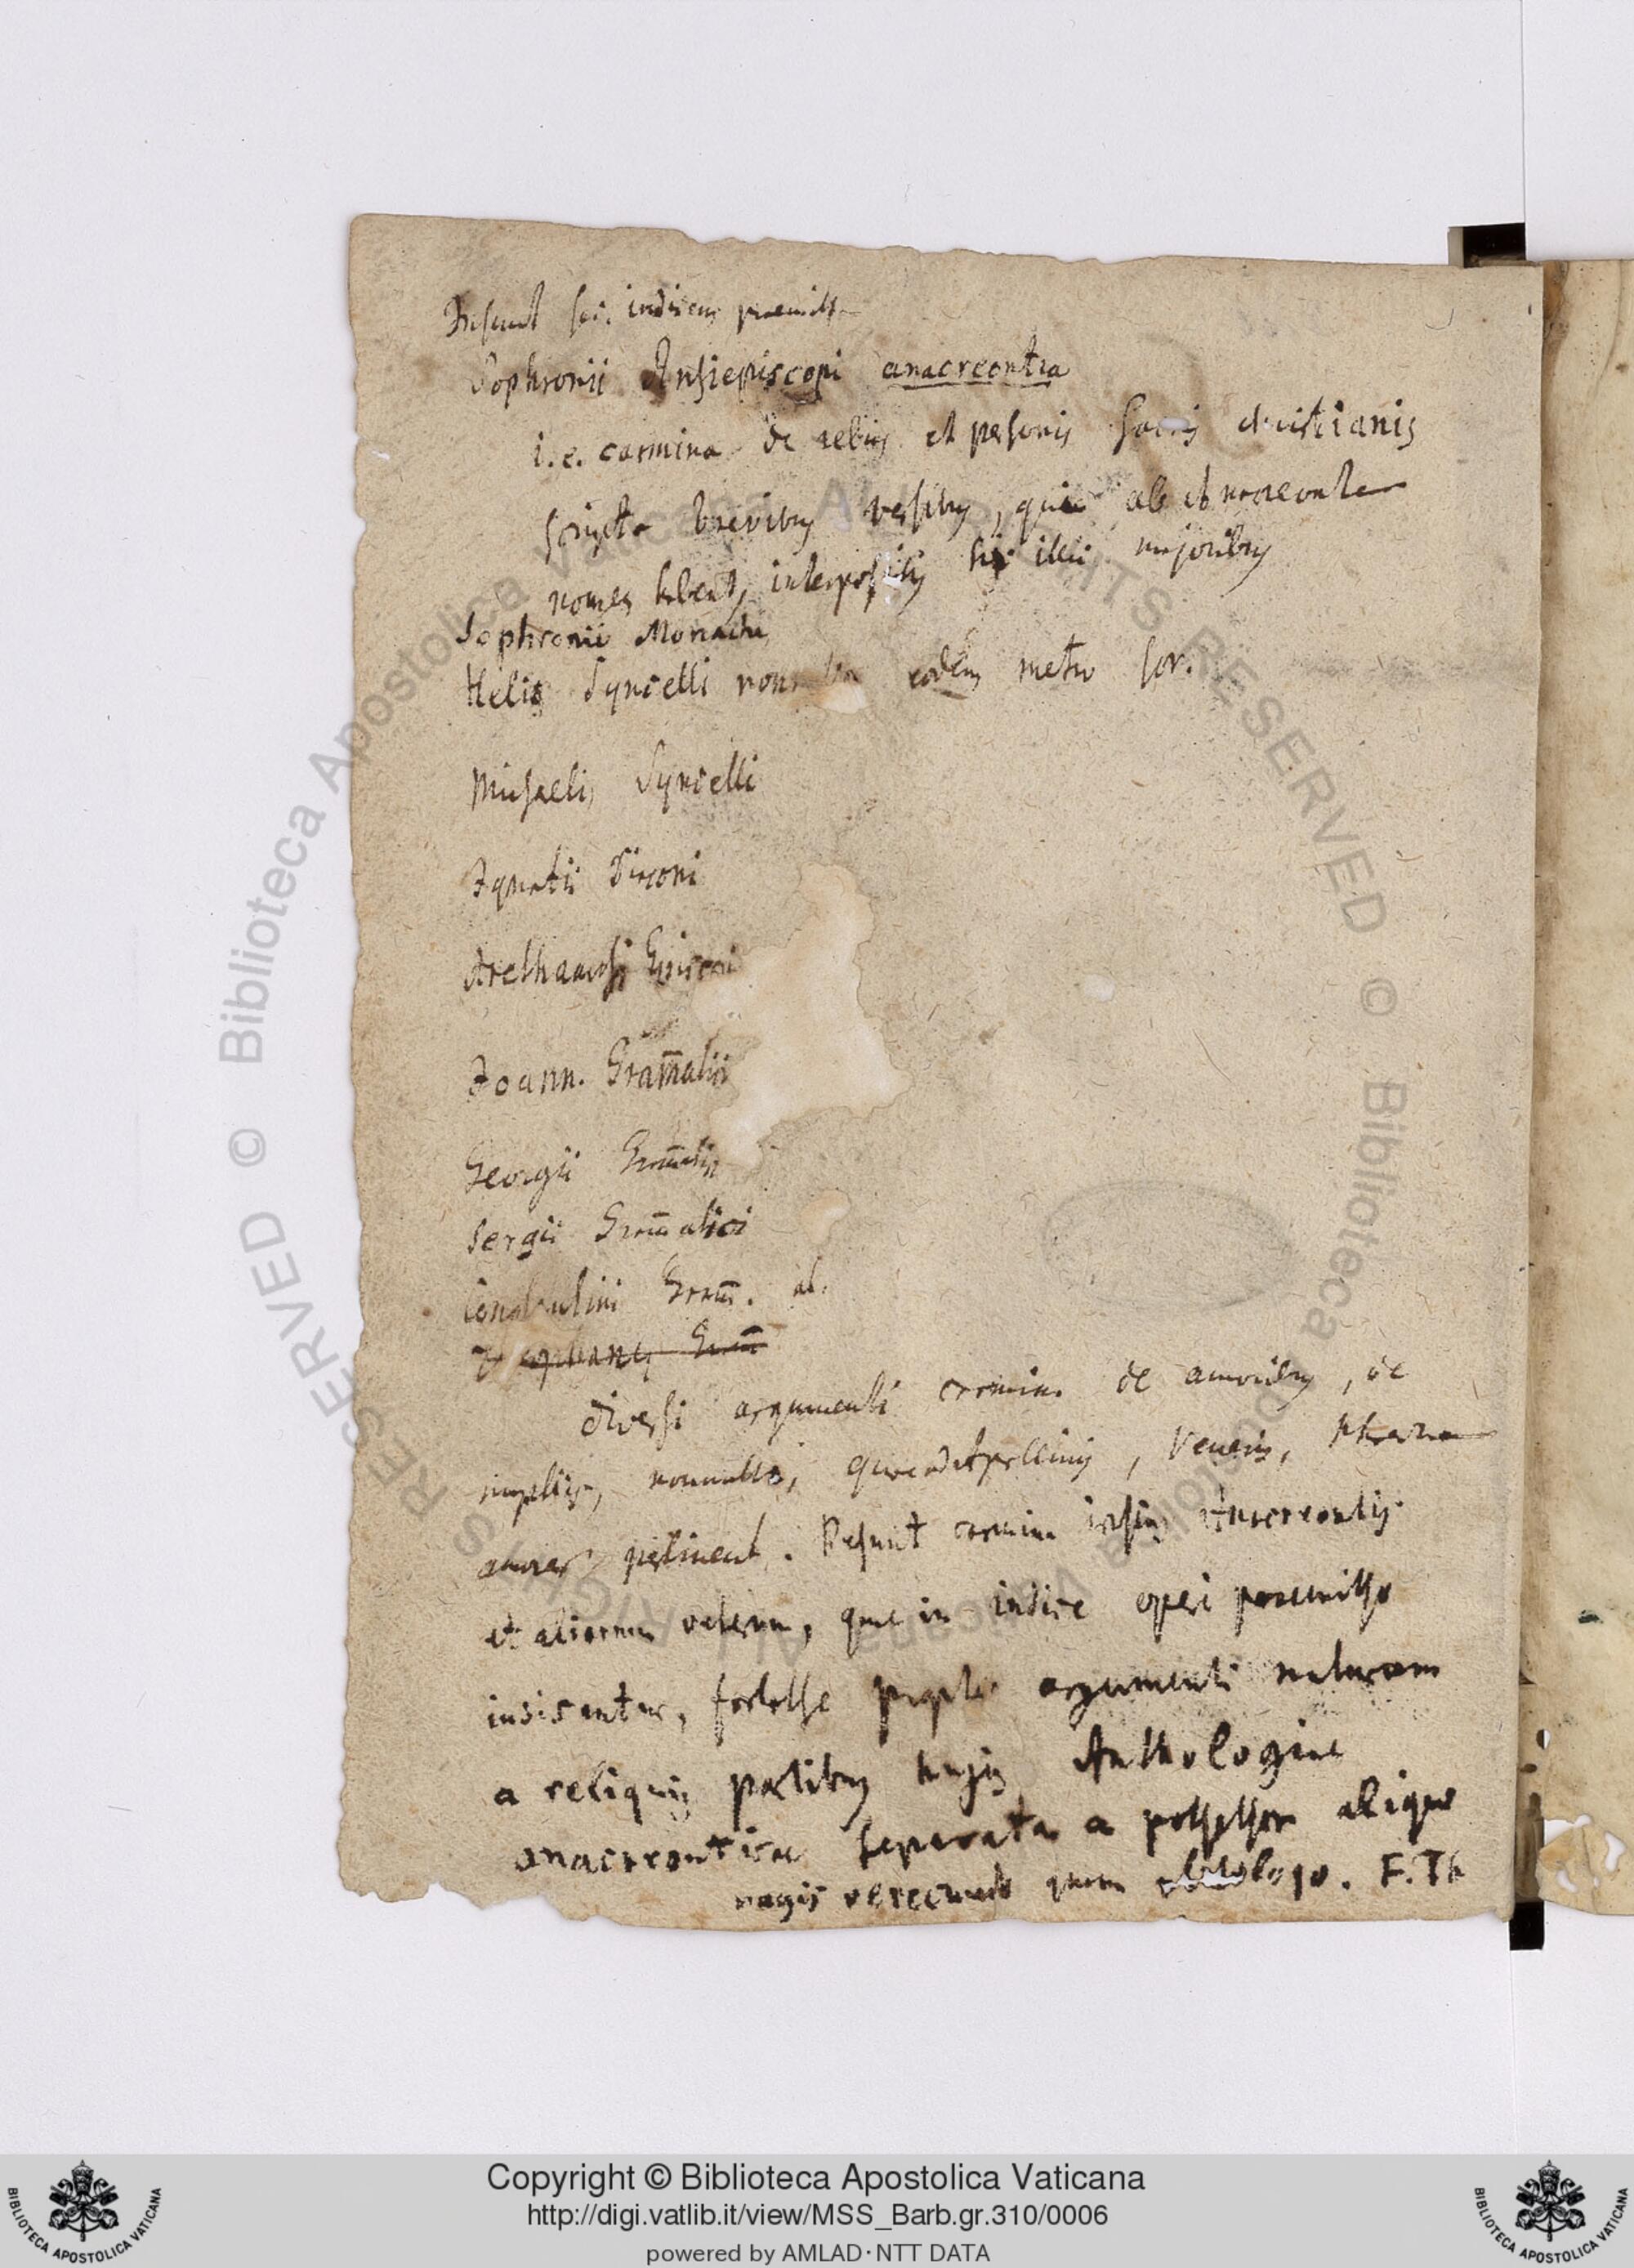 Insunt sec. indicem praemiss.
Sophronii Archiepiscopi anacreontia
i.e. carmina de rebus et personis sacris christianis
scripta brevibus versibus, qui ab Anacreonte
nomen habent, interpositis hic illic majoribus
Sophronii Monachi
Heliae Syncelli nonnulla eodem metro scr.
Michaelis Syncelli
Ignatii Diaconi
Arethae archiepiscopi
Joann. Gram̄atici
Georgii Gram̄atici
Sergii Gram̄atici
Constantini Gram̄. al.
diversi argumenti carmina de amoribus, de
nuptiis, nonnulla, quae ad, Veneris,
amores pertinent. Desunt carmina ipsius Anacreontis
et aliorum veterum, quae in indice operi praemisso
indicantur, fortasse propter argumenti naturam
a reliquis partibus hujus Anthologiae
anacreonticae separata a possessore aliquo
magis verecundo quam philologo. F. Th
RESERVED © Biblioteca Apostolica Vaticana ALL RIGHTS RESERVED © Biblioteca Apostolica Vaticana ALL RIGHTS
Copyright © Biblioteca Apostolica Vaticana
http://digi.vatlib.it/view/MSS_Barb.gr.310/0006
powered by AMLAD·NTT DATA
BIBLIOTECA APOSTOLICA VATICANA
BIBLIOTECA APOSTOLICA VATICANA